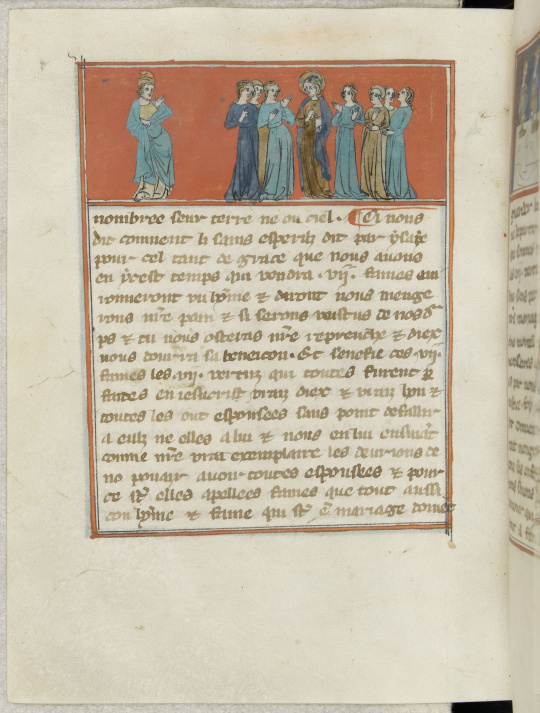 nombree seur terre ne ou ciel. Ci nous
dit comment li sains esperiz dit par ysaye
pour cel tant de grace que nous auons
en ycest temps qui vendra .vij. fames en
ironneront vn hõme & diront nous menge
rons nr̃e pain & si serons vestus de nos
ps & tu nous osteras nr̃e repreuche & diex
nous donrra sa beneicon. Et senefie ces .vij.
fames les .vij. vertuz qui toutes furent
faites en iesucrist vrai diex & vrai hõ &
toutes les out espousees sans point defallir
a eulz ne elles a lui & nous en lui ensiuãt
comme nr̃e vrai exemplaire les deurions de
no pouair auoir toutes espousees & pour
ce st̃ elles apellees fames que tout aussi
con hõme & fame qui st̃ en mariage